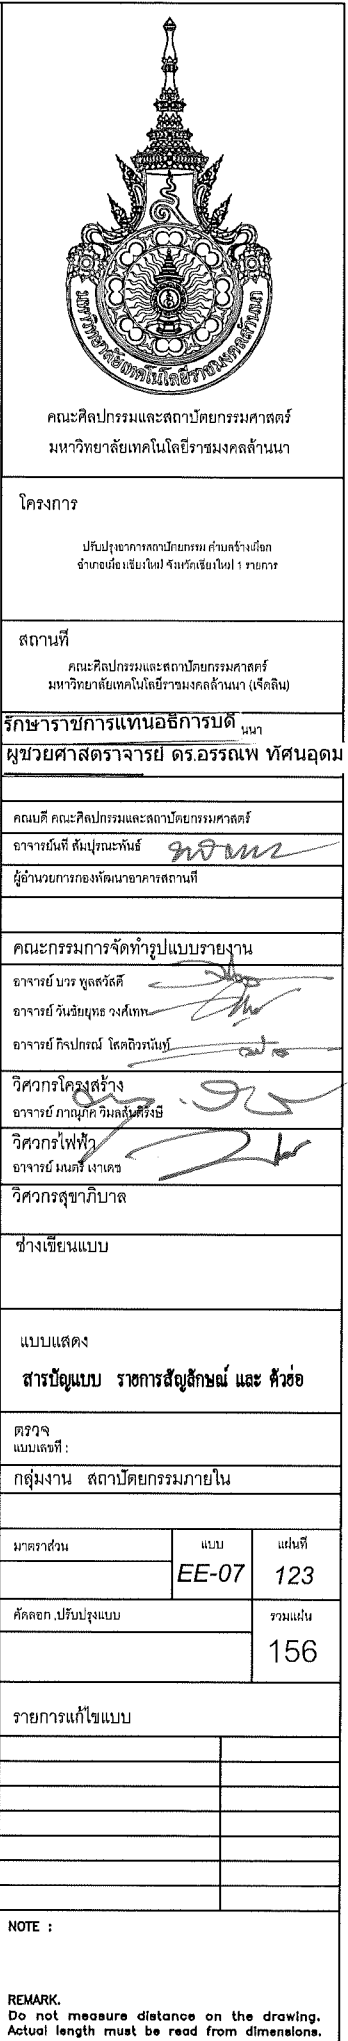 มหาวิทยาลัยเทคโนโลยีราชมงคลล้านนา
คณะศิลปกรรมและสถาปัตยกรรมศาสตร์
มหาวิทยาลัยเทคโนโลยีราชมงคลล้านนา
โครงการ
ปรับปรุงอาคารสถาปัตยกรรม ตำบลช้างเผือก
อำเภอเมืองเชียงใหม่ จังหวัดเชียงใหม่ 1 รายการ
สถานที่
คณะศิลปกรรมและสถาปัตยกรรมศาสตร์
มหาวิทยาลัยเทคโนโลยีราชมงคลล้านนา (เจ็ดลิน)
รักษาราชการแทนอธิการบดี นนา
ผู้ช่วยศาสตราจารย์ ดร.อรรณพ ทัศนอุดม
คณบดี คณะศิลปกรรมและสถาปัตยกรรมศาสตร์
อาจารย์นที สัมปุรณะพันธ์
ผู้อำนวยการกองพัฒนาอาคารสถานที่
คณะกรรมการจัดทำรูปแบบรายงาน
อาจารย์ บวร พูลสวัสดิ์
อาจารย์ วันชัยยุทธ วงศ์เทพ
อาจารย์ กิจปกรณ์
วิศวกรโครงสร้าง
อาจารย์ ภาณุภัค
วิศวกรไฟฟ้า
อาจารย์ มนตรี เงาเดช
วิศวกรสุขาภิบาล
ช่างเขียนแบบ
แบบแสดง
สารบัญแบบ รายการสัญลักษณ์ และ ตัวย่อ
ตรวจ
แบบเลขที่ :
กลุ่มงาน สถาปัตยกรรมภายใน
มาตราส่วน แบบ แผ่นที่
EE-07 123
คัดลอก ,ปรับปรุงแบบ รวมแผ่น
156
รายการแก้ไขแบบ
NOTE :
REMARK.
Do not measure distance on the drawing.
Actual length must be read from dimensions.